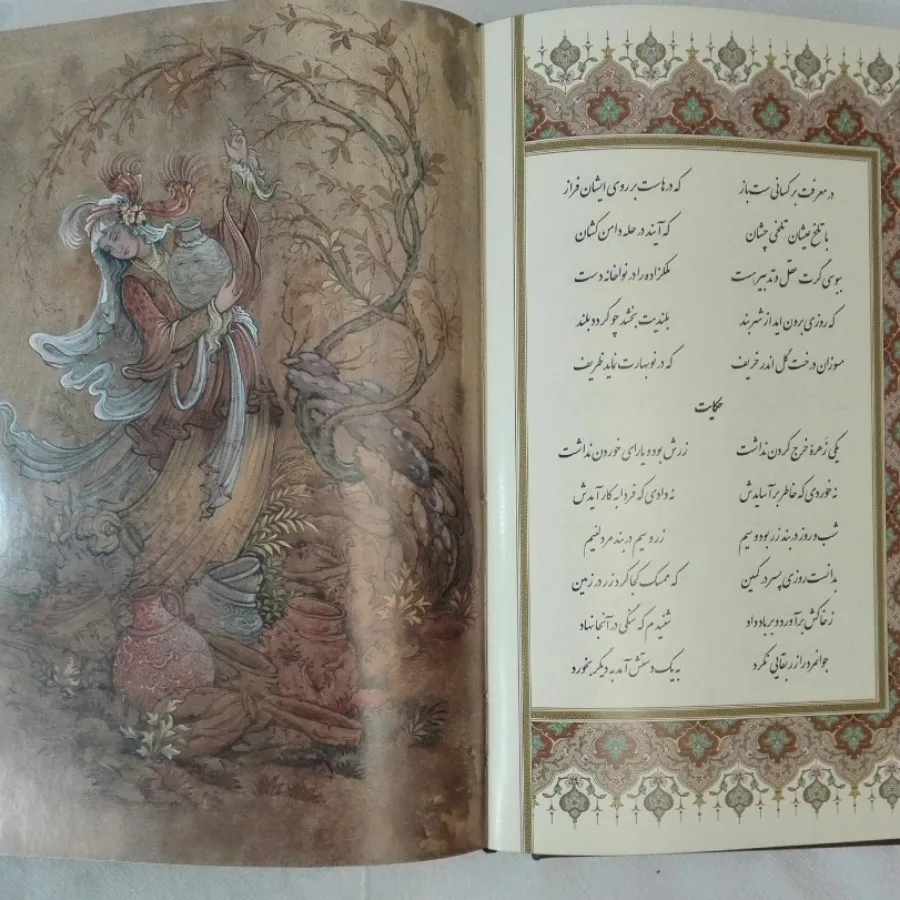 در معرفت بر کسانی ست باز که درهاست بر روی ایشان فراز
با تلخ عیشان تلخی چشان که آیند در حله دامن کشان
ببوسی گرت عقل و تدبیر هست ملکزاده را در نواخانه دست
که روزی برون اید از شهر بند بلندیت بخشد چو گردد بلند
مسوزان درخت گل اندر خریف که در نوبهارت نماید ظریف
حکایت
یکی زهرهٔ خرج کردن نداشت زرش بود و یارای خوردن نداشت
نه خوردی که خاطر بر آسایدش نه دادی که فردا به کار آیدش
شب و روز در بند زر بود و سیم زر و سیم در بند مرد لئیم
بدانست روزی پسر در کمین که ممسک کجا کرد زر در زمین
ز خاکش بر آورد و بر باد داد شنیدم که سنگی در آنجا نهاد
جوانمرد را زر بقایی نکرد به یک دستش آمد به دیگر بخورد